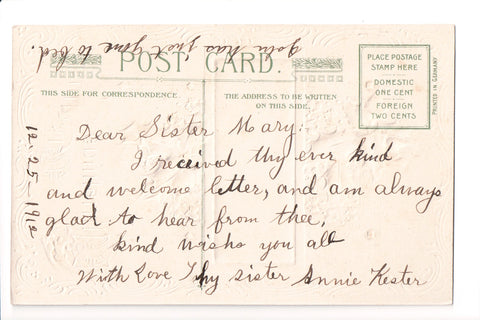 John has just gone to bed.
POST CARD.
THIS SIDE FOR CORRESPONDENCE.
THE ADDRESS TO BE WRITTEN
ON THIS SIDE.
PLACE POSTAGE
STAMP HERE
DOMESTIC
ONE CENT
FOREIGN
TWO CENTS
PRINTED IN GERMANY
12-25-1912
Dear Sister Mary:
I received thy ever kind
and welcome letter, and am always
glad to hear from thee,
kind wishs you all
With Love Thy sister Annie Kester